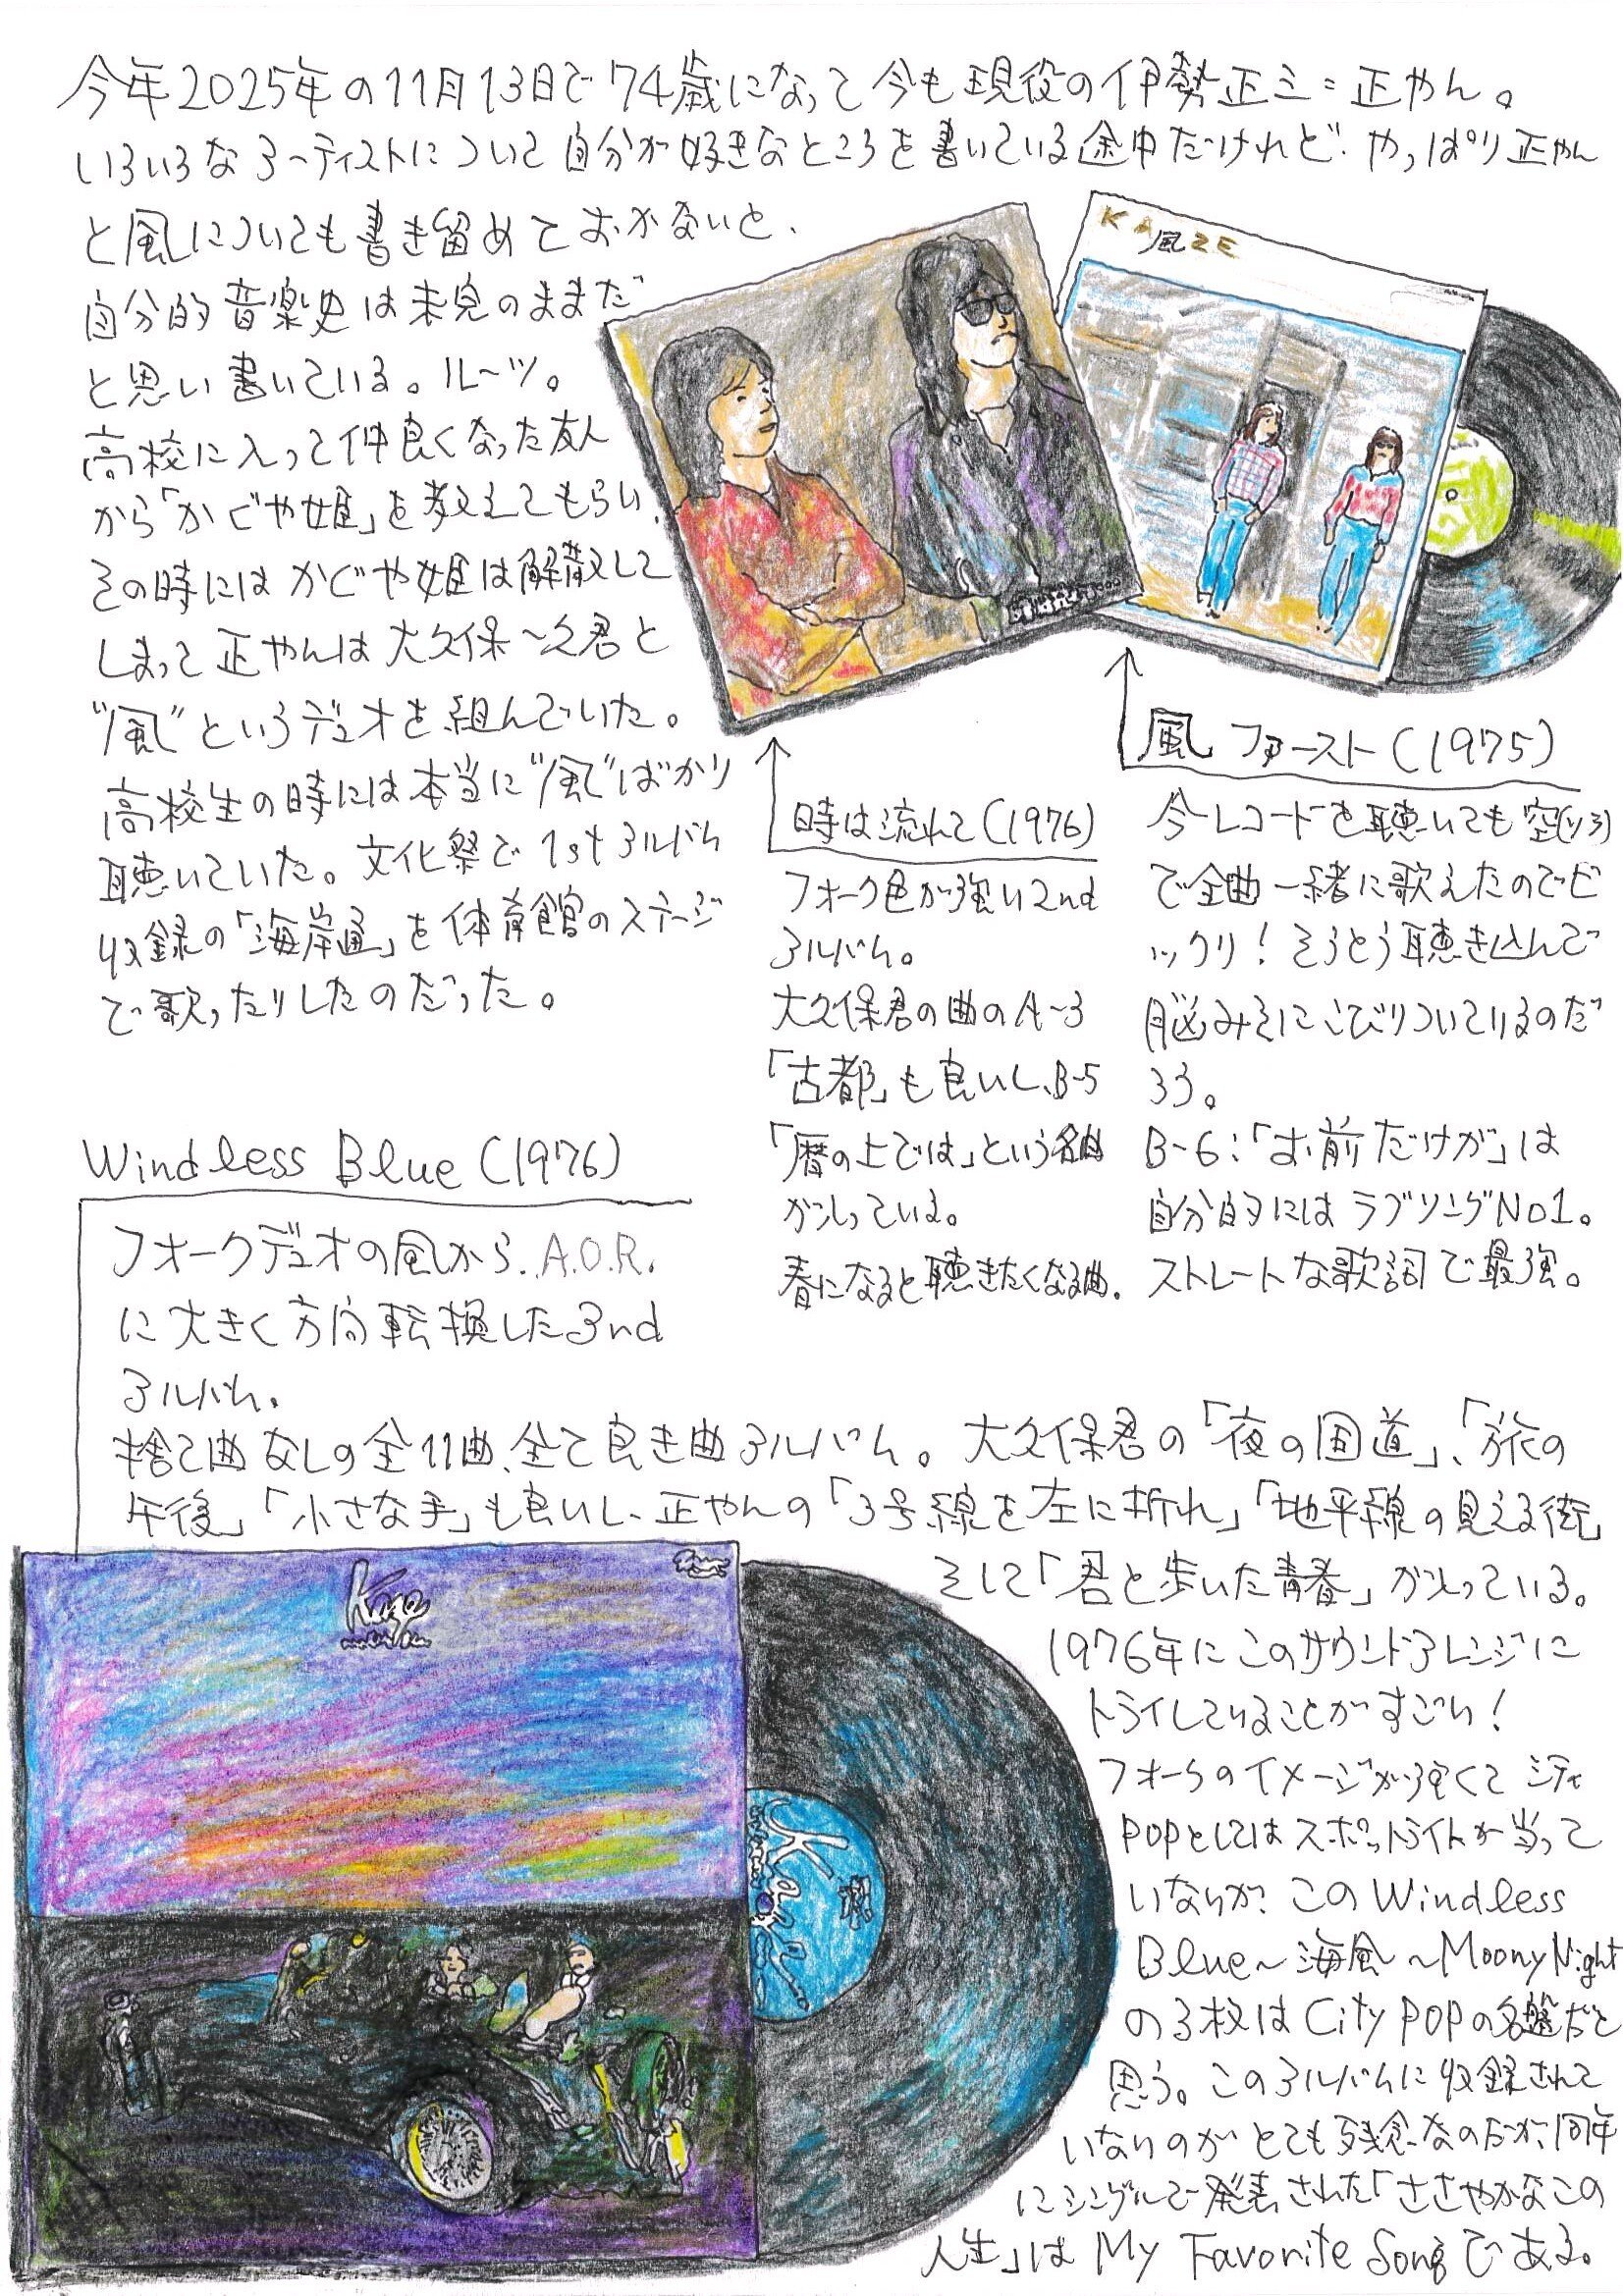 今年2025年の11月13日で74歳になって今も現役の伊勢正三=正やん。
いろいろなアーティストについて自分が好きなところを書いている途中だけれど、やっぱり正やん
と風についても書き留めておかないと、
自分的音楽史は未完のままだ
と思い書いている。ルーツ。
高校に入って仲良くなった友人
から「かぐや姫」を教えてもらい、
その時にはかぐや姫は解散して
しまって正やんは大久保一久君と
"風"というデュオを組んでいた。
高校生の時には本当に"風"ばかり
聴いていた。文化祭で1stアルバム
収録の「海岸通」を体育館のステージ
で歌ったりしたのだった。
KAZE
風
風 ファースト(1975)
今レコードを聴いても空(ソラ)
で全曲一緒に歌えたのでビ
ックリ!そうとう聴き込んで
脳みそにこびりついているのだ
ろう。
B-6:「お前だけが」は
自分的にはラブソングNO1。
ストレートな歌詞で最強。
時は流れて(1976)
フォーク色が強い2nd
アルバム。
大久保君の曲のA-3
「古都」も良いし、B-5
「暦の上では」という名曲
が入っている。
春になると聴きたくなる曲。
Windless Blue(1976)
フォークデュオの風から、A.O.R.
に大きく方向転換した3nd
アルバム。
捨て曲なしの全11曲、全て良き曲アルバム。大久保君の「夜の国道」、「旅の
午後」「小さな手」も良いし、正やんの「3号線を左に折れ」「地平線の見える街」
そして「君と歩いた青春」が入っている。
1976年にこのサウンドアレンジに
トライしていることがすごい!
フォークのイメージが強くて シティ
POPとしてはスポットライトが当って
いないが、このWindless
Blue~海風~MoonyNight
の3枚はCity POPの名盤だと
思う。このアルバムに収録されて
いないのがとても残念なのだが、同年
にシングルで発表された「ささやかなこの
人生」は My Favorite Songである。
Kaze
Kaze